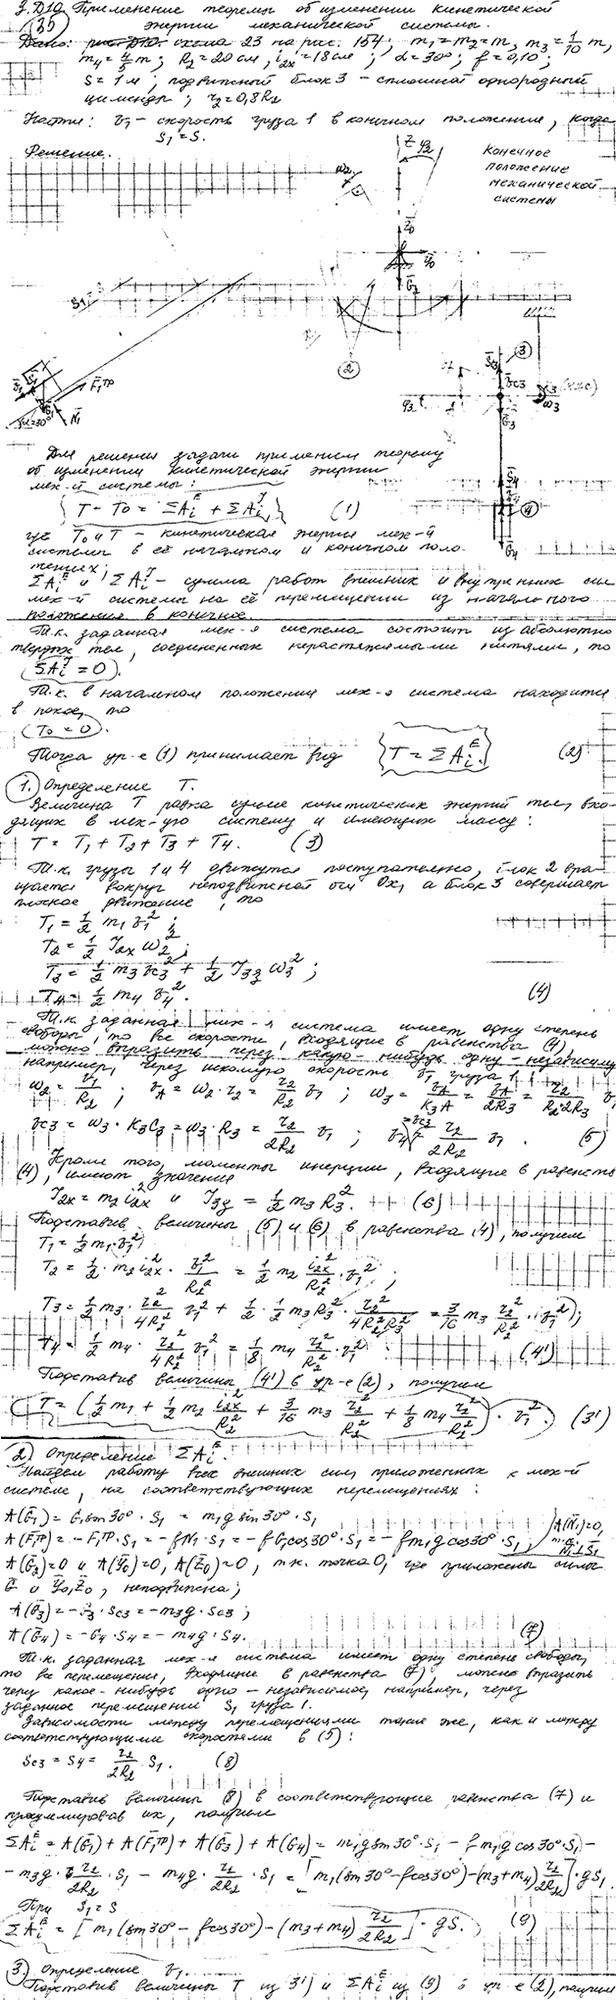 Д.D19. Применение теоремы об изменении кинетической
(35) энергии механической системы.
Дано: рис. D10. схема 23 на рис. 154; m₁=m₂=m, m₃=1/10 m,
m₄=1/5 m; R₂=20 см, i₂ₓ=18 см; α=30°; f=0,10;
S=1 м; подвижной блок 3 – сплошной однородный
цилиндр; r₂=0,8R₂
Найти: v₁ – скорость груза 1 в конечном положении, когда
S₁=S.
Решение.
Конечное
положение
механической
системы
Для решения задачи применим теорему
об изменении кинетической энергии
мех-й системы:
T - T₀ = ΣAᵢᴱ + ΣAᵢᴶ (1)
где T₀ и T – кинетическая энергия мех-й
системы в её начальном и конечном поло-
жениях;
ΣAᵢᴱ и ΣAᵢᴶ – сумма работ внешних и внутренних сил
мех-й системы на её перемещении из начального
положения в конечное.
Т.к. заданная мех-я система состоит из абсолютно
твердых тел, соединенных нерастяжимыми нитями, то
(ΣAᵢᴶ = 0).
Т.к. в начальном положении мех-я система находится
в покое, то
(T₀ = 0).
Тогда ур-е (1) принимает вид {T = ΣAᵢᴱ.} (2)
1. Определение T.
Величина T равна сумме кинетических энергий тел, вхо-
дящих в мех-ую систему и имеющих массу:
T = T₁ + T₂ + T₃ + T₄. (3)
Т.к. грузы 1 и 4 движутся поступательно, блок 2 вра-
щается вокруг неподвижной оси Ox, а блок 3 совершает
плоское движение, то
T₁ = 1/2 m₁ v₁²;
T₂ = 1/2 J₂ₓ ω₂²;
T₃ = 1/2 m₃ v_C3² + 1/2 J₃ξ ω₃²;
T₄ = 1/2 m₄ v₄². (4)
Т.к. заданная мех-я система имеет одну степень
свободы, то все скорости, входящие в равенства (4),
можно выразить через какую-нибудь одну – независимую
например, через искомую скорость v₁ груза 1
ω₂ = v₁/R₂; v_A = ω₂·r₂ = r₂/R₂ v₁; ω₃ = v_A/K₃A = v_A/2R₃ = r₂/R₂·2R₃ v₁
v_C3 = ω₃·K₃C₃ = ω₃·R₃ = r₂/2R₂ v₁; v₄ = v_C3 = r₂/2R₂ v₁. (5)
Кроме того, моменты инерции, входящие в равенств
(4), имеют значения
J₂ₓ = m₂ i₂ₓ² и J₃ξ = 1/2 m₃ R₃². (6)
Подставив величины (5) и (6) в равенства (4), получим
T₁ = 1/2 m₁·v₁²;
T₂ = 1/2·m₂ i₂ₓ²·v₁²/R₂² = 1/2 m₂ i₂ₓ²/R₂²·v₁²;
T₃ = 1/2 m₃·r₂²/4R₂² v₁² + 1/2·1/2 m₃R₃²·r₂²/4R₂²R₃² = 3/16 m₃ r₂²/R₂²·v₁²;
T₄ = 1/2 m₄·r₂²/4R₂² v₁² = 1/8 m₄ r₂²/R₂² v₁². (4')
Подставив величины (4') в ур-е (2), получим
T = (1/2 m₁ + 1/2 m₂ i₂ₓ²/R₂² + 3/16 m₃ r₂²/R₂² + 1/8 m₄ r₂²/R₂²)·v₁². (3')
2. Определение ΣAᵢᴱ.
Найдем работу всех внешних сил, приложенных к мех-й
системе, на соответствующих перемещениях:
A(G₁) = G₁ sin 30°·S₁ = m₁g sin 30°·S₁
A(F₁тр) = -F₁тр·S₁ = -fN₁·S₁ = -fG₁cos30°·S₁ = -fm₁g cos30°·S₁; A(N₁)=0, т.к. N₁⊥S₁
A(G₂)=0 и A(Y₀)=0, A(Z₀)=0, т.к. точка O, где приложены силы
G и Y₀, Z₀, неподвижна;
A(G₃) = -G₃·S_C3 = -m₃g·S_C3;
A(G₄) = -G₄·S₄ = -m₄g·S₄. (7)
Т.к. заданная мех-я система имеет одну степень свободы,
то все перемещения, входящие в равенства (7), можно выразить
через какое-нибудь одно – независимое, например, через
заданное перемещение S₁ груза 1.
Зависимости между перемещениями такие же, как и между
соответствующими скоростями в (5):
S_C3 = S₄ = r₂/2R₂ S₁. (8)
Подставив величины (8) в соответствующие равенства (7) и
просуммировав их, получим
ΣAᵢᴱ = A(G₁) + A(F₁тр) + A(G₃) + A(G₄) = m₁g sin 30°·S₁ - f m₁g cos 30°·S₁ -
- m₃g·r₂/2R₂·S₁ - m₄g·r₂/2R₂·S₁ = [m₁(sin 30°-fcos30°)-(m₃+m₄) r₂/2R₂]·gS₁.
При S₁=S
ΣAᵢᴱ = [m₁(sin 30° - fcos30°) - (m₃+m₄) r₂/2R₂]·gS. (9)
3. Определение v₁.
Подставив величины T из 3') и ΣAᵢᴱ из (9) в ур-е (2), получим